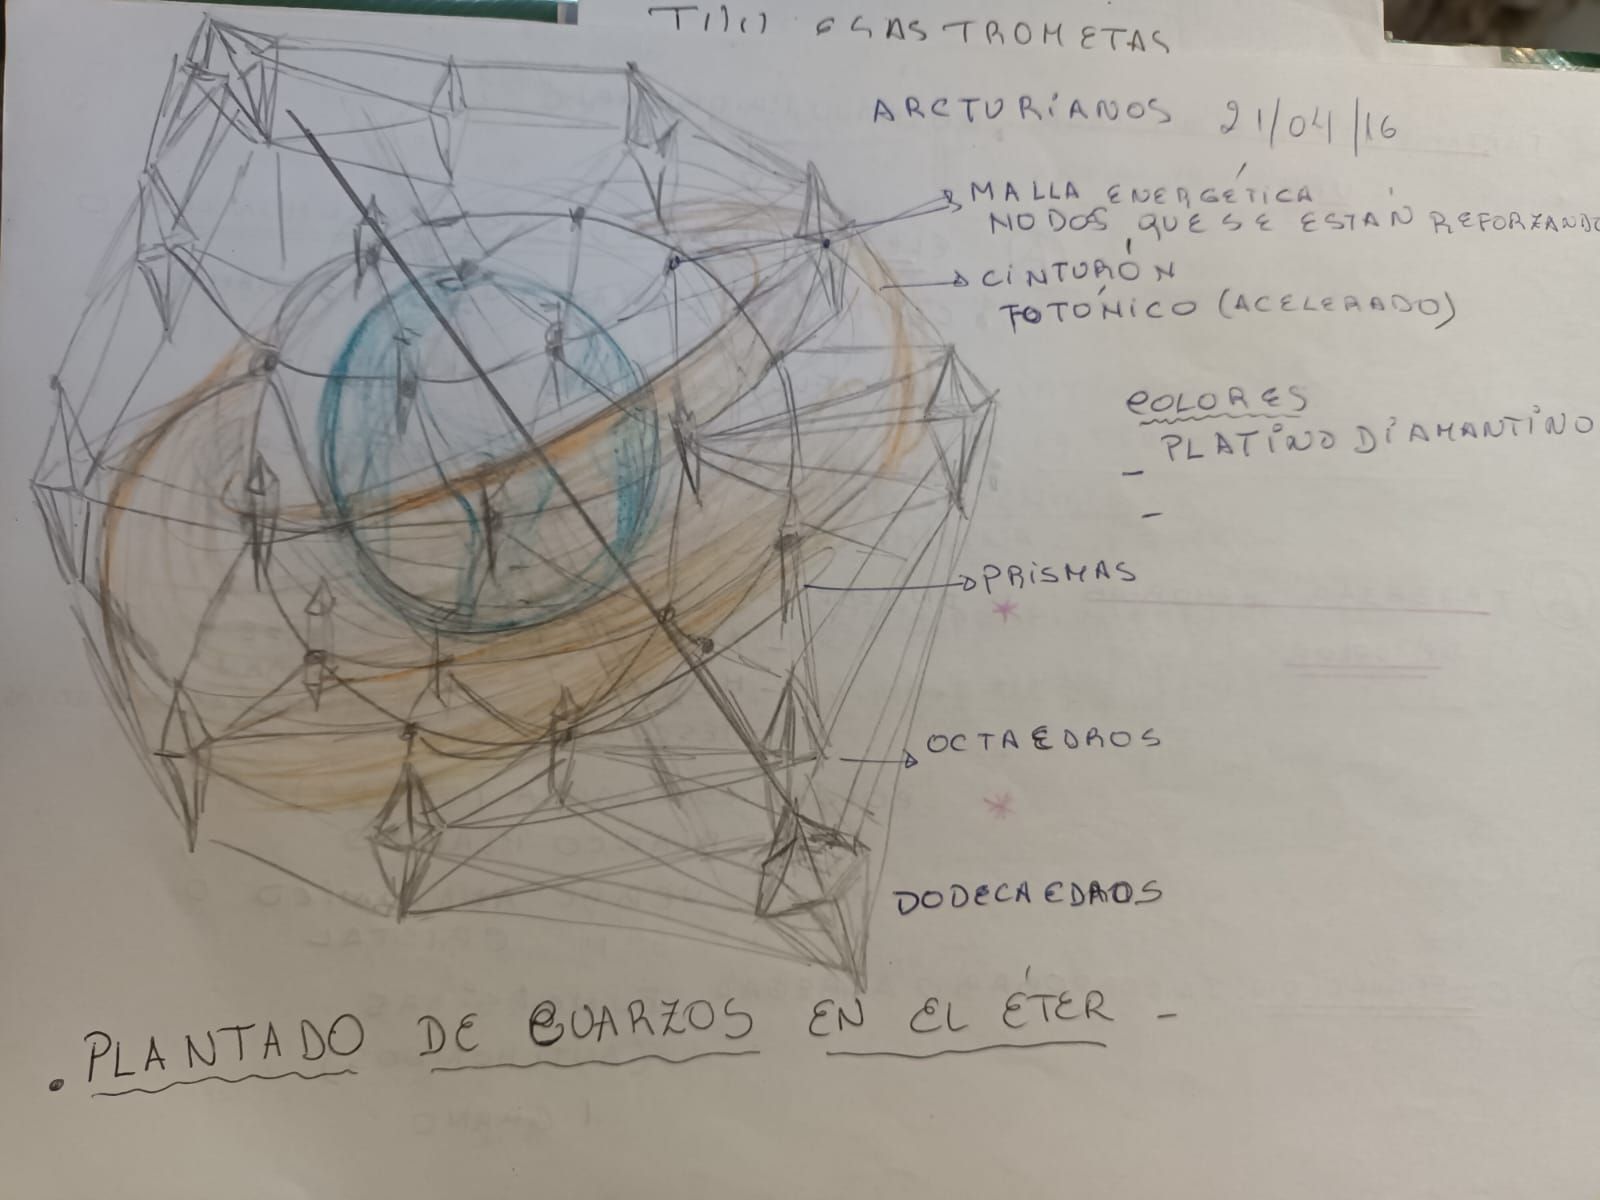 ARCTURIANOS 21/04/16
MALLA ENERGÉTICA
NODOS QUE SE ESTÁN REFORZANDO
CINTURÓN
FOTÓNICO (ACELERADO)
COLORES
PLATINO DIAMANTINO
-
-
PRISMAS
*
OCTAEDROS
*
DODECAEDROS
. PLANTADO DE CUARZOS EN EL ÉTER -